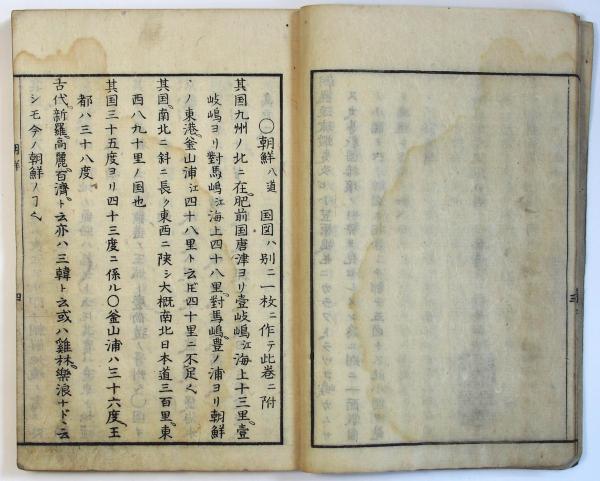 〇朝鮮八道　国図ハ別ニ一枚ニ作テ此巻ニ附
其国九州ノ北ニ在肥前国唐津ヨリ壹岐嶋江海上十三里壹
岐嶋ヨリ對馬嶋江海上四十八里對馬嶋豊ノ浦ヨリ朝鮮
ノ東港釜山浦江四十八里ト云𪜈四十里ニ不足ヘ
其国南北ニ斜ニ長ク東西ニ陝シ大概南北日本道三百里東
西八九十里ノ国也
其国三十五度ヨリ四十三度ニ係ル〇釜山浦ハ三十六度王
都ハ三十八度
古代新羅高麗百濟ト云亦ハ三韓ト云或ハ雞林樂浪ナドヽ云
シモ今ノ朝鮮ノヿヘ
朝鮮
四
三